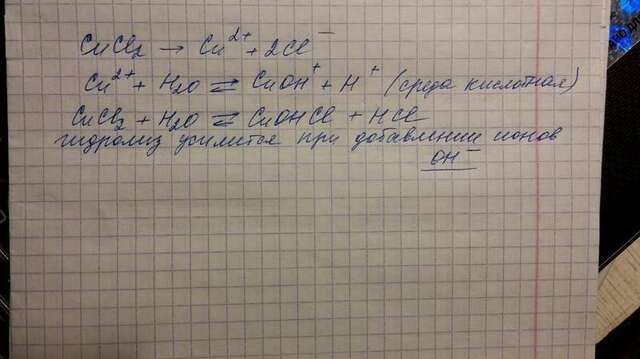 CuCl₂ → Cu²⁺ + 2Cl⁻
Cu²⁺ + H₂O ⇌ CuOH⁺ + H⁺ (среда кислотная)
CuCl₂ + H₂O ⇌ CuOHCl + HCl
гидролиз усилится при добавлении ионов
OH⁻